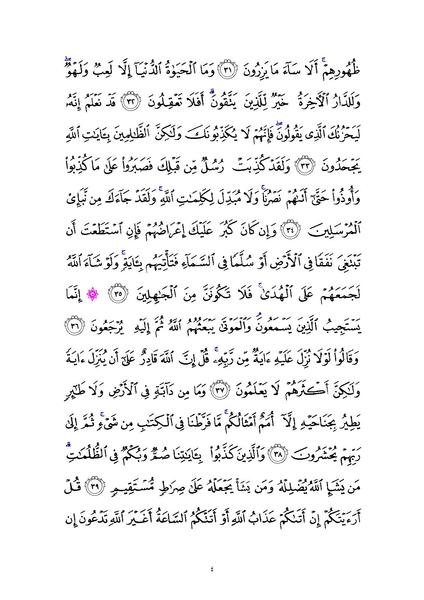 ظُهُورِهِمْ ۚ أَلَا سَآءَ مَا يَزِرُونَ ﴿٣١﴾ وَمَا الْحَيَوٰةُ الدُّنْيَآ إِلَّا لَعِبٌ وَلَهْوٌ ۖ
وَلَلدَّارُ الْأَخِرَةُ خَيْرٌ لِّلَّذِينَ يَتَّقُونَ ۗ أَفَلَا تَعْقِلُونَ ﴿٣٢﴾ قَدْ نَعْلَمُ إِنَّهُ
لَيَحْزُنُكَ الَّذِى يَقُولُونَ ۖ فَإِنَّهُمْ لَا يُكَذِّبُونَكَ وَلَٰكِنَّ الظَّالِمِينَ بِـَٔايَٰتِ اللَّهِ
يَجْحَدُونَ ﴿٣٣﴾ وَلَقَدْ كُذِّبَتْ رُسُلٌ مِّن قَبْلِكَ فَصَبَرُوا۟ عَلَىٰ مَا كُذِّبُوا۟
وَأُوذُوا۟ حَتَّىٰٓ أَتَىٰهُمْ نَصْرُنَا ۚ وَلَا مُبَدِّلَ لِكَلِمَٰتِ اللَّهِ ۚ وَلَقَدْ جَآءَكَ مِن نَّبَإِى۟
الْمُرْسَلِينَ ﴿٣٤﴾ وَإِن كَانَ كَبُرَ عَلَيْكَ إِعْرَاضُهُمْ فَإِنِ اسْتَطَعْتَ أَن
تَبْتَغِىَ نَفَقًا فِى الْأَرْضِ أَوْ سُلَّمًا فِى السَّمَآءِ فَتَأْتِيَهُم بِـَٔايَةٍ ۚ وَلَوْ شَآءَ اللَّهُ
لَجَمَعَهُمْ عَلَى الْهُدَىٰ ۚ فَلَا تَكُونَنَّ مِنَ الْجَٰهِلِينَ ﴿٣٥﴾ ۞ إِنَّمَا
يَسْتَجِيبُ الَّذِينَ يَسْمَعُونَ ۘ وَالْمَوْتَىٰ يَبْعَثُهُمُ اللَّهُ ثُمَّ إِلَيْهِ يُرْجَعُونَ ﴿٣٦﴾
وَقَالُوا۟ لَوْلَا نُزِّلَ عَلَيْهِ ءَايَةٌ مِّن رَّبِّهِ ۚ قُلْ إِنَّ اللَّهَ قَادِرٌ عَلَىٰٓ أَن يُنَزِّلَ ءَايَةً
وَلَٰكِنَّ أَكْثَرَهُمْ لَا يَعْلَمُونَ ﴿٣٧﴾ وَمَا مِن دَآبَّةٍ فِى الْأَرْضِ وَلَا طَٰٓئِرٍ
يَطِيرُ بِجَنَاحَيْهِ إِلَّآ أُمَمٌ أَمْثَالُكُم ۚ مَّا فَرَّطْنَا فِى الْكِتَٰبِ مِن شَىْءٍ ۚ ثُمَّ إِلَىٰ
رَبِّهِمْ يُحْشَرُونَ ﴿٣٨﴾ وَالَّذِينَ كَذَّبُوا۟ بِـَٔايَٰتِنَا صُمٌّ وَبُكْمٌ فِى الظُّلُمَٰتِ ۗ
مَن يَشَإِ اللَّهُ يُضْلِلْهُ وَمَن يَشَأْ يَجْعَلْهُ عَلَىٰ صِرَٰطٍ مُّسْتَقِيمٍ ﴿٣٩﴾ قُلْ
أَرَءَيْتَكُمْ إِنْ أَتَىٰكُمْ عَذَابُ اللَّهِ أَوْ أَتَتْكُمُ السَّاعَةُ أَغَيْرَ اللَّهِ تَدْعُونَ إِن
٤